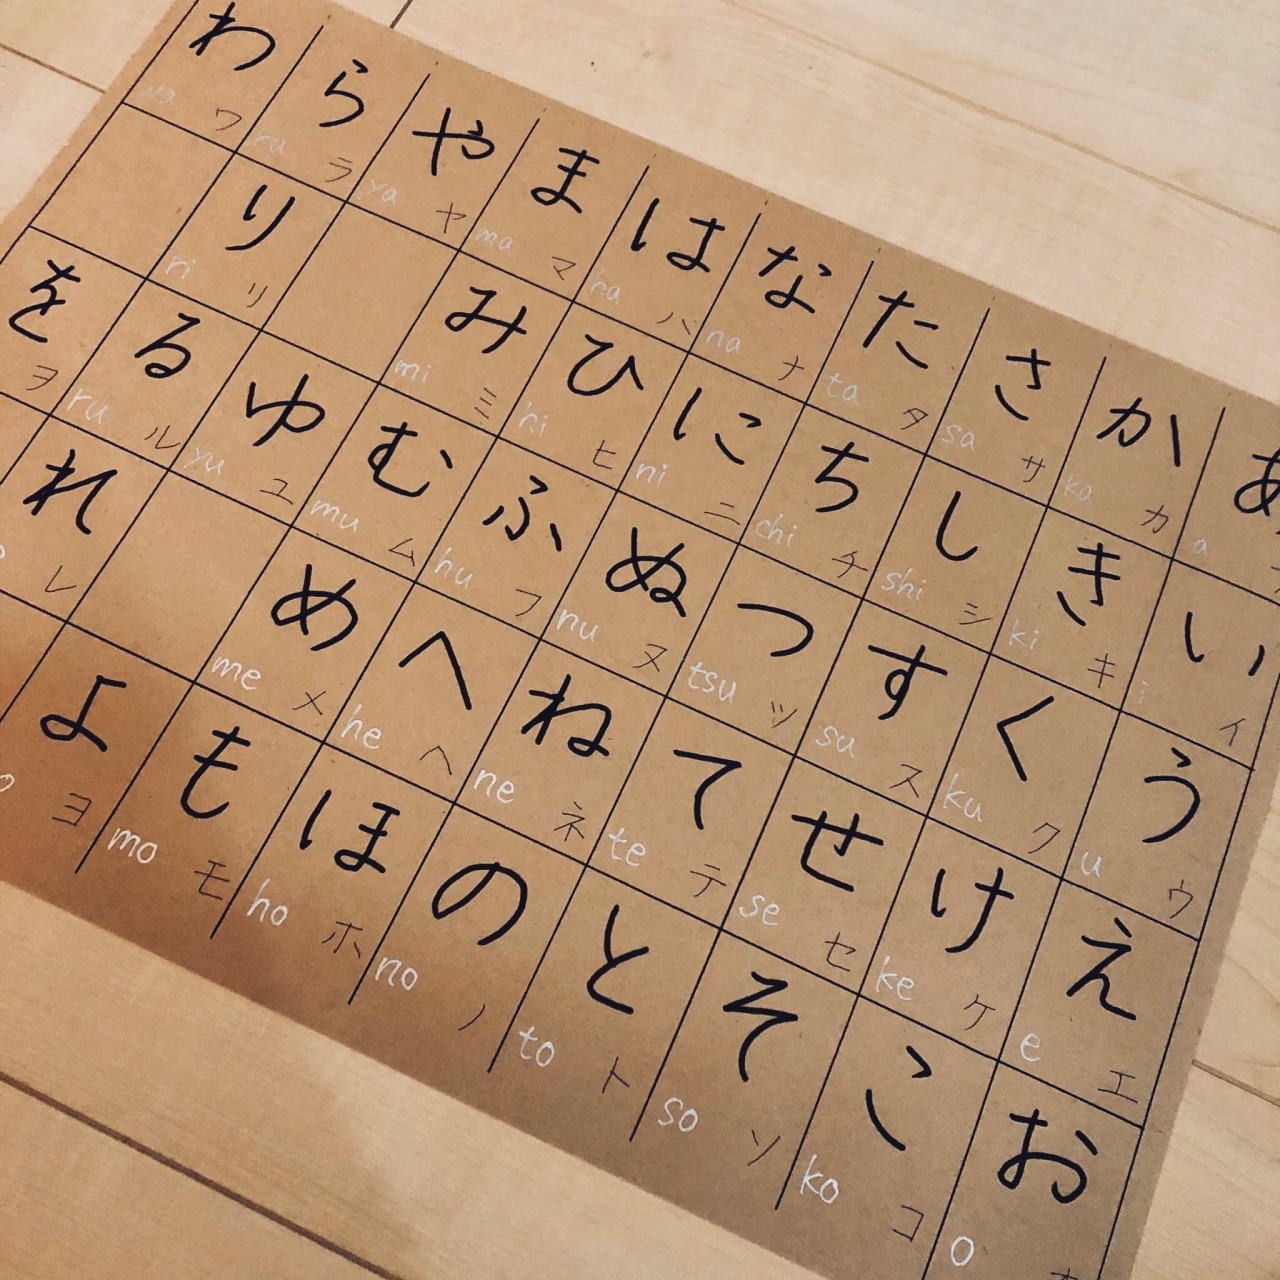 わ ら や ま は な た さ か あ
wa ワ ra ラ ya ヤ ma マ ha ハ na ナ ta タ sa サ ka カ a
り み ひ に ち し き い
ri リ mi ミ hi ヒ ni ニ chi チ shi シ ki キ i イ
を る ゆ む ふ ぬ つ す く う
ヲ ru ル yu ユ mu ム hu フ nu ヌ tsu ツ su ス ku ク u ウ
れ め へ ね て せ け え
レ me メ he ヘ ne ネ te テ se セ ke ケ e エ
よ も ほ の と そ こ お
ヨ mo モ ho ホ no ノ to ト so ソ ko コ o